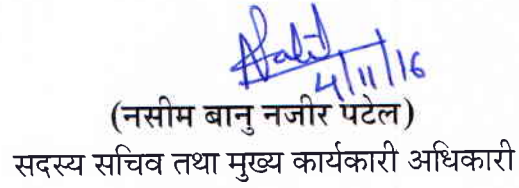 4/11/16
(नसीम बानु नजीर पटेल)
सदस्य सचिव तथा मुख्य कार्यकारी अधिकारी